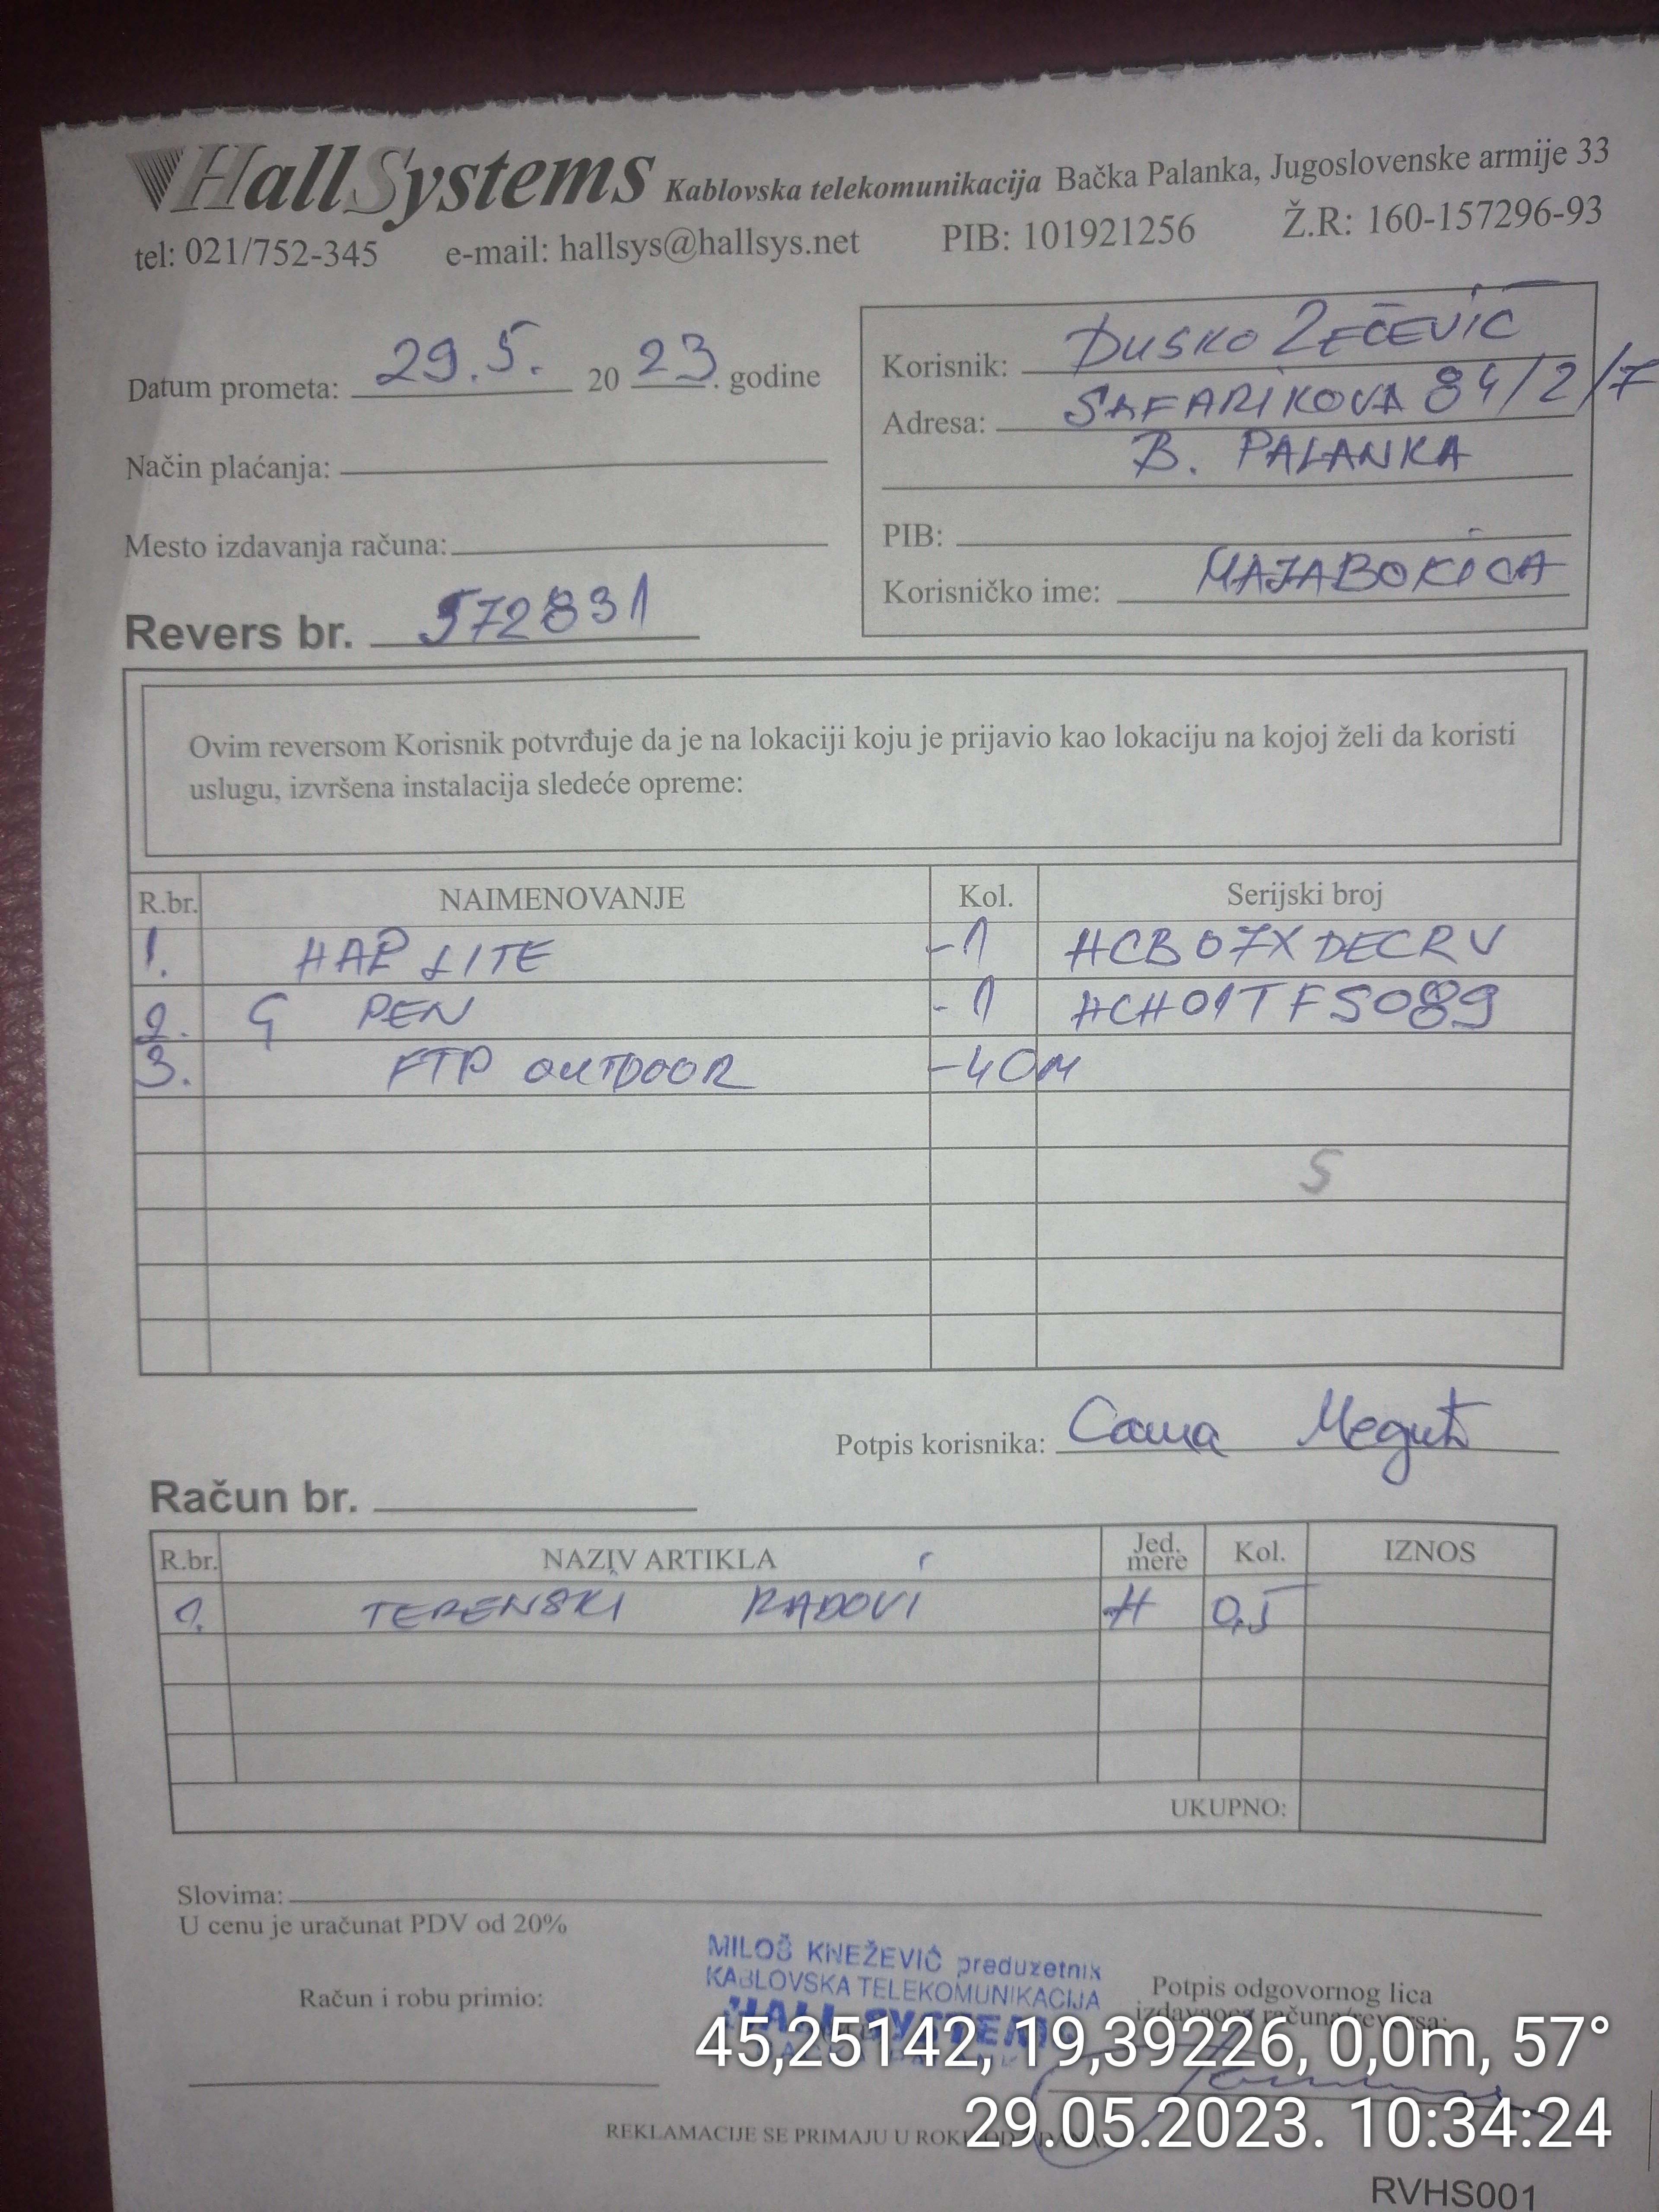 HallSystems Kablovska telekomunikacija Bačka Palanka, Jugoslovenske armije 33
tel: 021/752-345 e-mail: hallsys@hallsys.net PIB: 101921256 Ž.R: 160-157296-93
Datum prometa: 29.5. 2023. godine
Način plaćanja:
Mesto izdavanja računa:
Revers br. 572831
Korisnik: DUSKO ZEČEVIĆ
Adresa: SAFARIKOVA 84/2/7
B. PALANKA
PIB:
Korisničko ime: MAJABOKICA
Ovim reversom Korisnik potvrđuje da je na lokaciji koju je prijavio kao lokaciju na kojoj želi da koristi
uslugu, izvršena instalacija sledeće opreme:
R.br. NAIMENOVANJE Kol. Serijski broj
1. HAP LITE -1 HCB07XDECRV
2. G PEN -1 HCH01TFS089
3. FTP OUTDOOR -40M
S
Potpis korisnika: Саша Медић
Račun br.
R.br. NAZIV ARTIKLA Jed. mere Kol. IZNOS
1. TERENSKI RADOVI H 0,5
UKUPNO:
Slovima:
U cenu je uračunat PDV od 20%
Račun i robu primio:
MILOŠ KNEŽEVIĆ preduzetnik
KABLOVSKA TELEKOMUNIKACIJA
HALL SYSTEM
Potpis odgovornog lica
izdavaoca računa/reversa:
45,25142, 19,39226, 0,0m, 57°
29.05.2023. 10:34:24
REKLAMACIJE SE PRIMAJU U ROKU OD
RVHS001